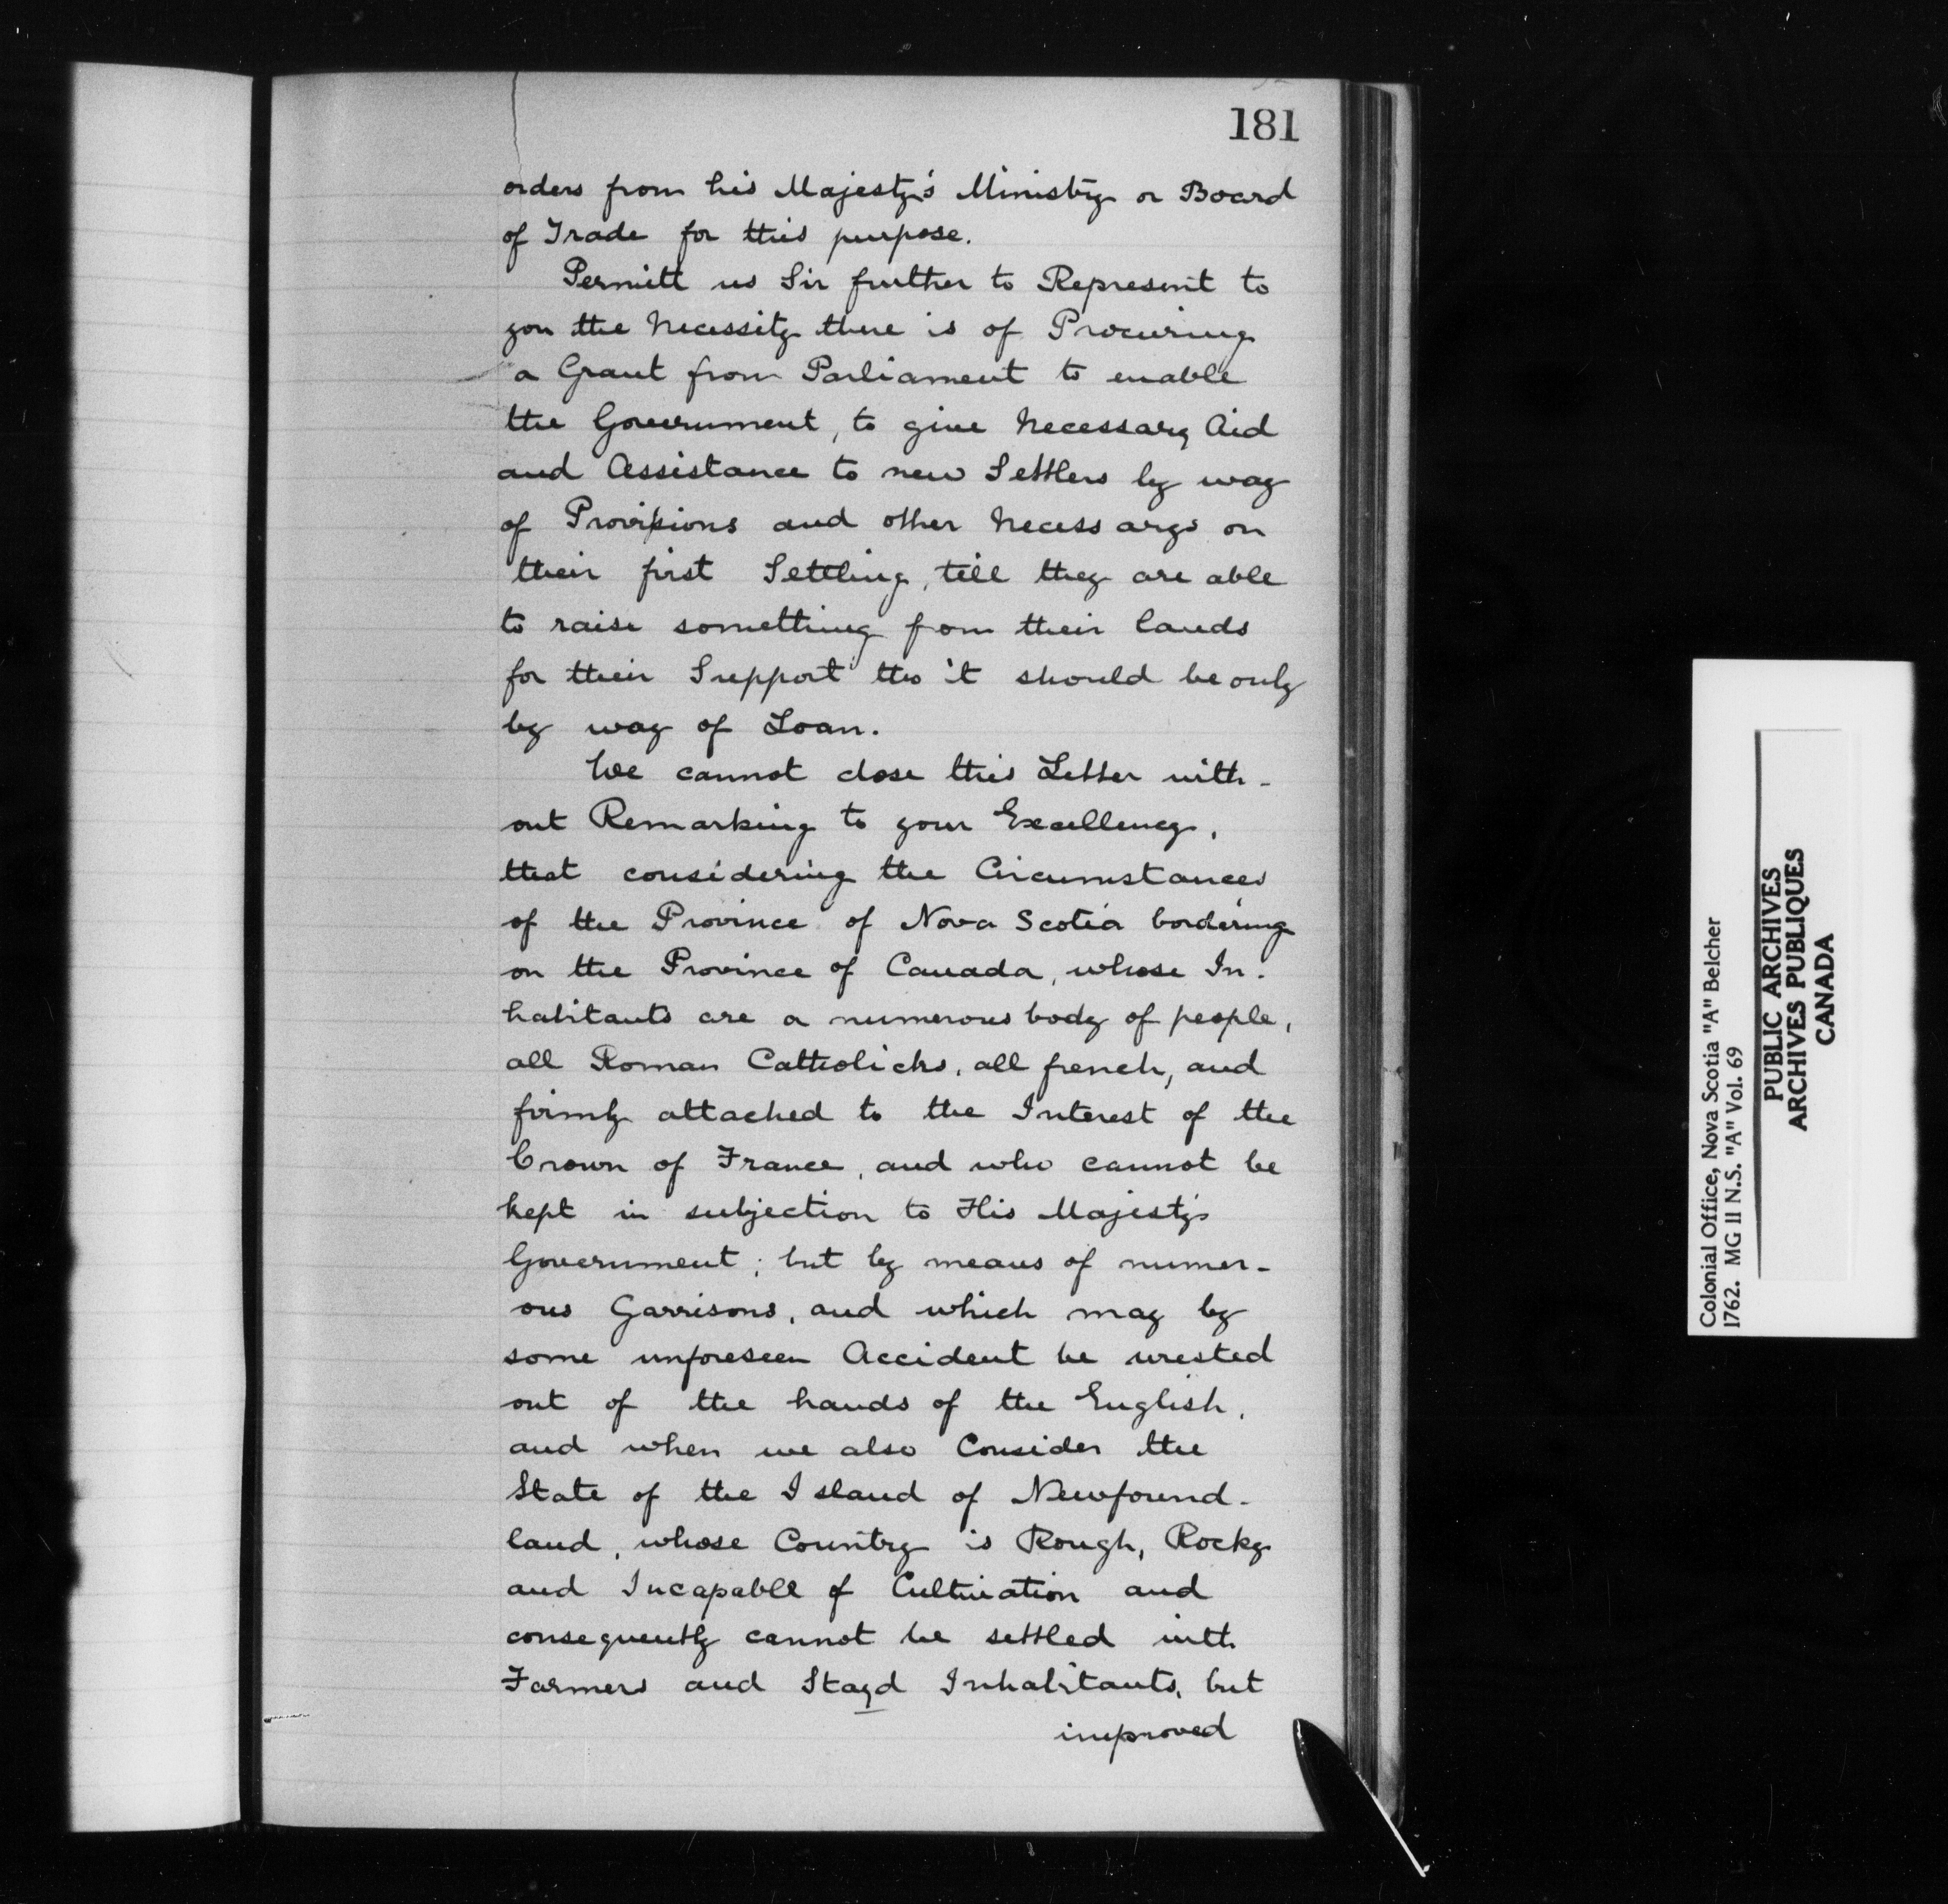 181
orders from his Majesty's Ministry or Board
of Trade for this purpose.
Permitt us Sir further to Represent to
you the Necessity there is of Procuring
a Grant from Parliament to enable
the Government, to give Necessary Aid
and Assistance to new Settlers by way
of Provisions and other Necessarys on
their first Settling, till they are able
to raise something from their lands
for their Support tho 't should be only
by way of Loan.
We cannot close this Letter with-
out Remarking to your Excellency,
that considering the Circumstances
of the Province of Nova Scotia bordering
on the Province of Canada, whose In-
habitants are a numerous body of people,
all Roman Catholicks, all french, and
firmly attached to the Interest of the
Crown of France, and who cannot be
kept in subjection to His Majesty's
Government; but by means of numer-
ous Garrisons, and which may by
some unforeseen Accident be wrested
out of the hands of the English,
and when we also Consider the
State of the Island of Newfound-
land, whose Country is Rough, Rocky
and Incapable of Cultivation and
consequently cannot be settled with
Farmers and Stayd Inhabitants, but
improved
Colonial Office, Nova Scotia "A" Belcher
1762. MG 11 N.S. "A" Vol. 69
PUBLIC ARCHIVES
ARCHIVES PUBLIQUES
CANADA